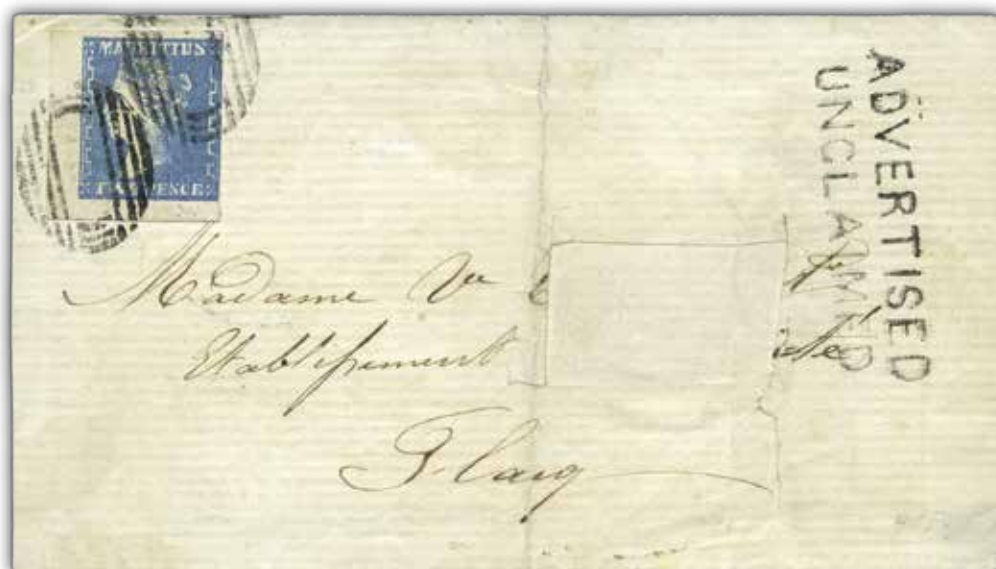 MAURITIUS
TWO PENCE
ADVERTISED
UNCLAIMED
Madame Ve
Etablissement
Flacq